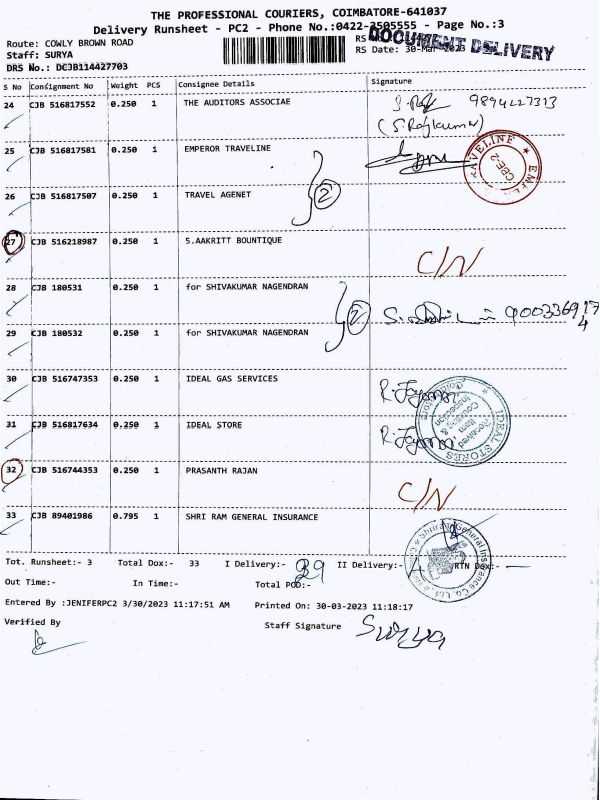 THE PROFESSIONAL COURIERS, COIMBATORE-641037
Delivery Runsheet - PC2 - Phone No.:0422-3505555 - Page No.:3
Route: COWLY BROWN ROAD
Staff: SURYA
DRS No.: DCJB114427703
RS Date: 30-Mar-2023
DOCUMENT DELIVERY
S No Consignment No Weight PCS Consignee Details Signature
24 CJB 516817552 0.250 1 THE AUDITORS ASSOCIAE 9894227313
(S.Rajkumar)
25 CJB 516817581 0.250 1 EMPEROR TRAVELINE
CBE-2
26 CJB 516817507 0.250 1 TRAVEL AGENET
2
27 CJB 516218987 0.250 1 5.AAKRITT BOUNTIQUE C/N
28 CJB 180531 0.250 1 for SHIVAKUMAR NAGENDRAN
2
29 CJB 180532 0.250 1 for SHIVAKUMAR NAGENDRAN
30 CJB 516747353 0.250 1 IDEAL GAS SERVICES
31 CJB 516817634 0.250 1 IDEAL STORE
IDEAL STORES
32 CJB 516744353 0.250 1 PRASANTH RAJAN C/N
33 CJB 89401986 0.795 1 SHRI RAM GENERAL INSURANCE
Shriram General Insurance Co. Ltd
Tot. Runsheet:- 3 Total Dox:- 33 I Delivery:- 29 II Delivery:- 4 RTN Dox:- —
Out Time:- In Time:- Total POD:-
Entered By :JENIFERPC2 3/30/2023 11:17:51 AM Printed On: 30-03-2023 11:18:17
Verified By Staff Signature Surya